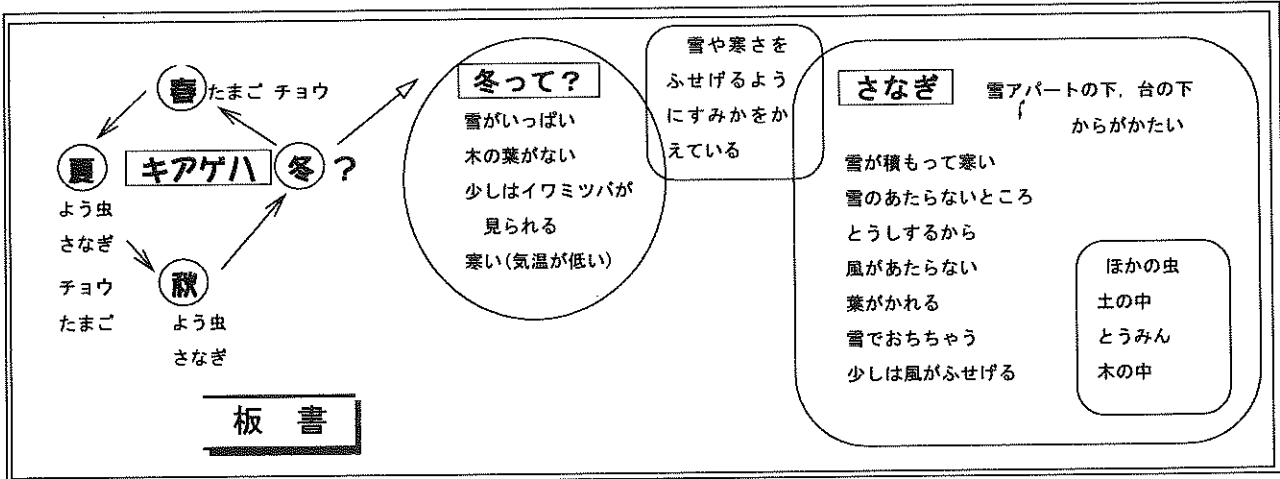 春 たまご チョウ
夏 キアゲハ 冬 ?
よう虫
さなぎ
チョウ
たまご
秋
よう虫
さなぎ
板 書
冬って?
雪がいっぱい
木の葉がない
少しはイワミツバが
見られる
寒い(気温が低い)
雪や寒さを
ふせげるよう
にすみかをか
えている
さなぎ
雪アパートの下, 台の下
からがかたい
雪が積もって寒い
雪のあたらないところ
とうしするから
風があたらない
葉がかれる
雪でおちちゃう
少しは風がふせげる
ほかの虫
土の中
とうみん
木の中